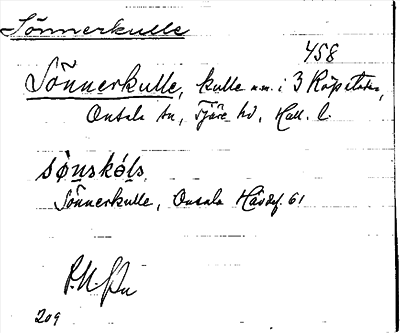 Sönnerkulle
458
Sönnerkulle, kulle n.m. i 3 Köpstaden,
Onsala sn, Fjäre hd, Hall. l.
sønskøls,
Sönnerkulle, Onsala Hävdef. 61
209